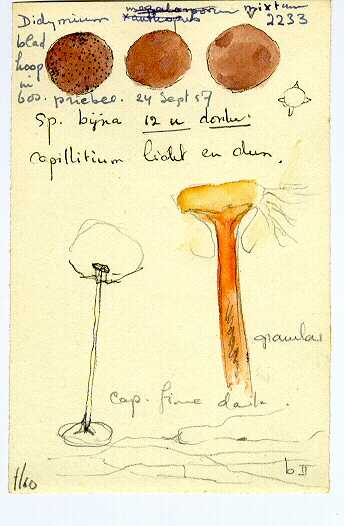 Didymium megalosporum mixtum
xanthopus 2233
blad
hoop
in
bos. priebee. 24 Sept 57
Sp. bijna 12 u donker.
capillitium licht en dun.
granular
Cap. fine dark.
b II
1/60